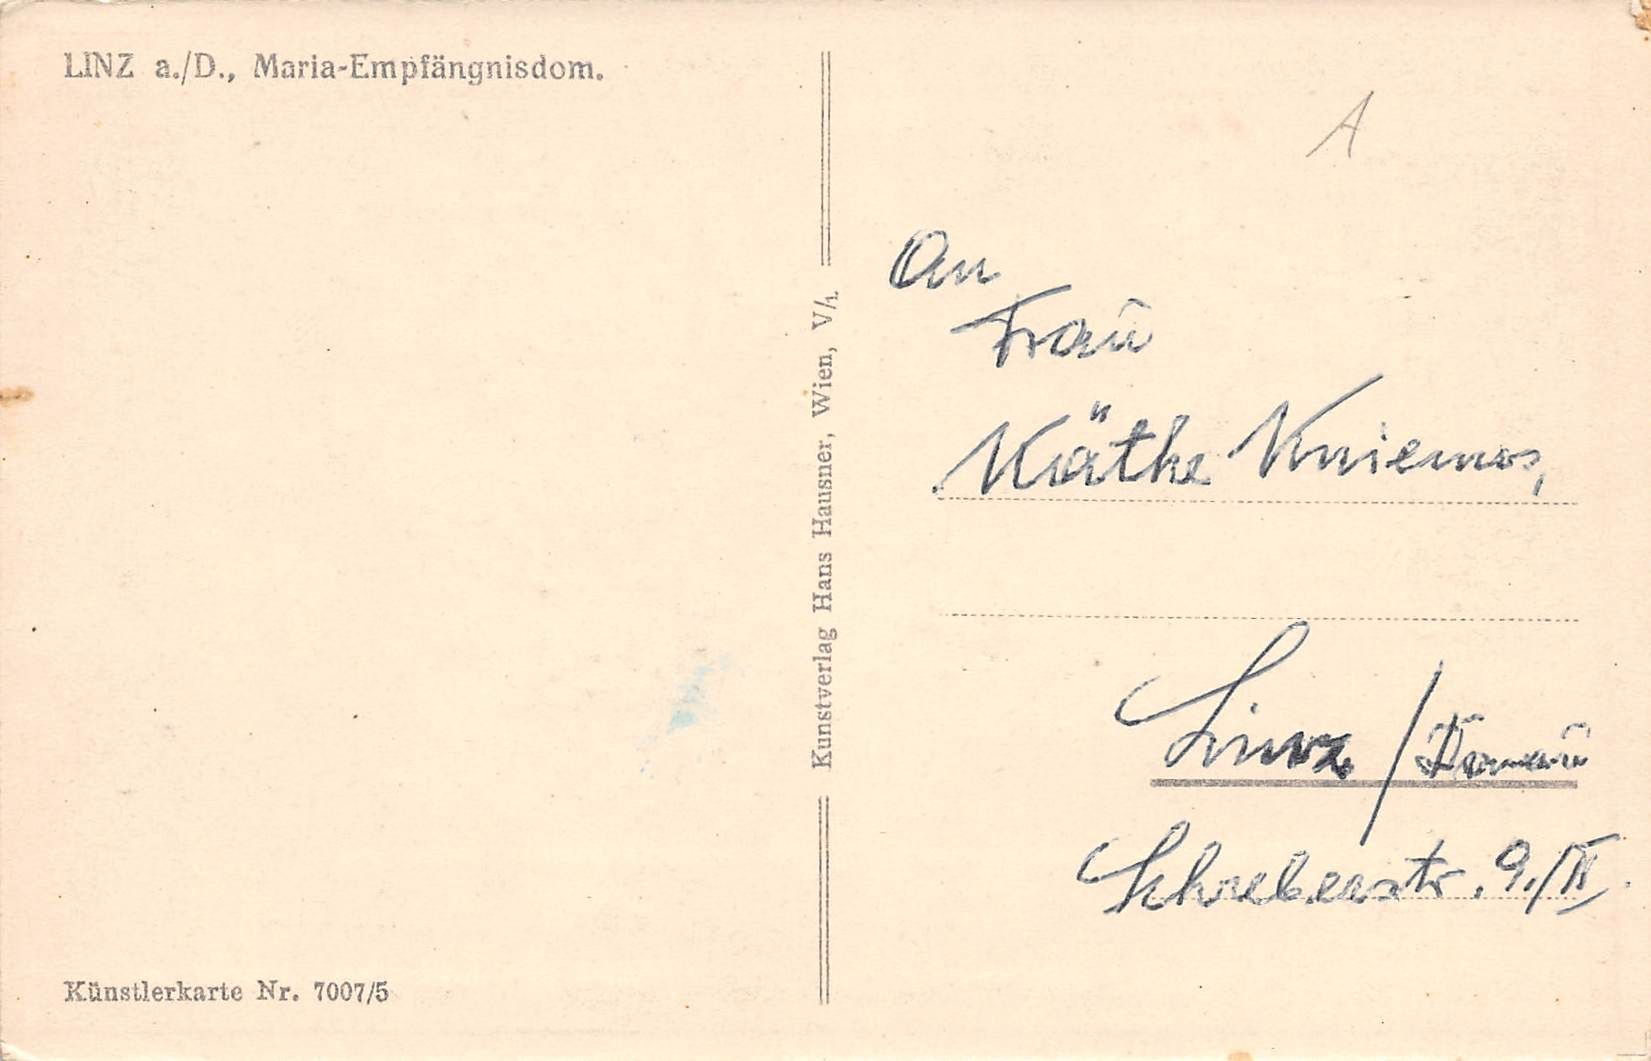 LINZ a./D., Maria-Empfängnisdom.
Künstlerkarte Nr. 7007/5
Kunstverlag Hans Hausner, Wien, V/1.
A
An
Frau
Käthe
Linz / Donau
Schreberstr. 9./II.